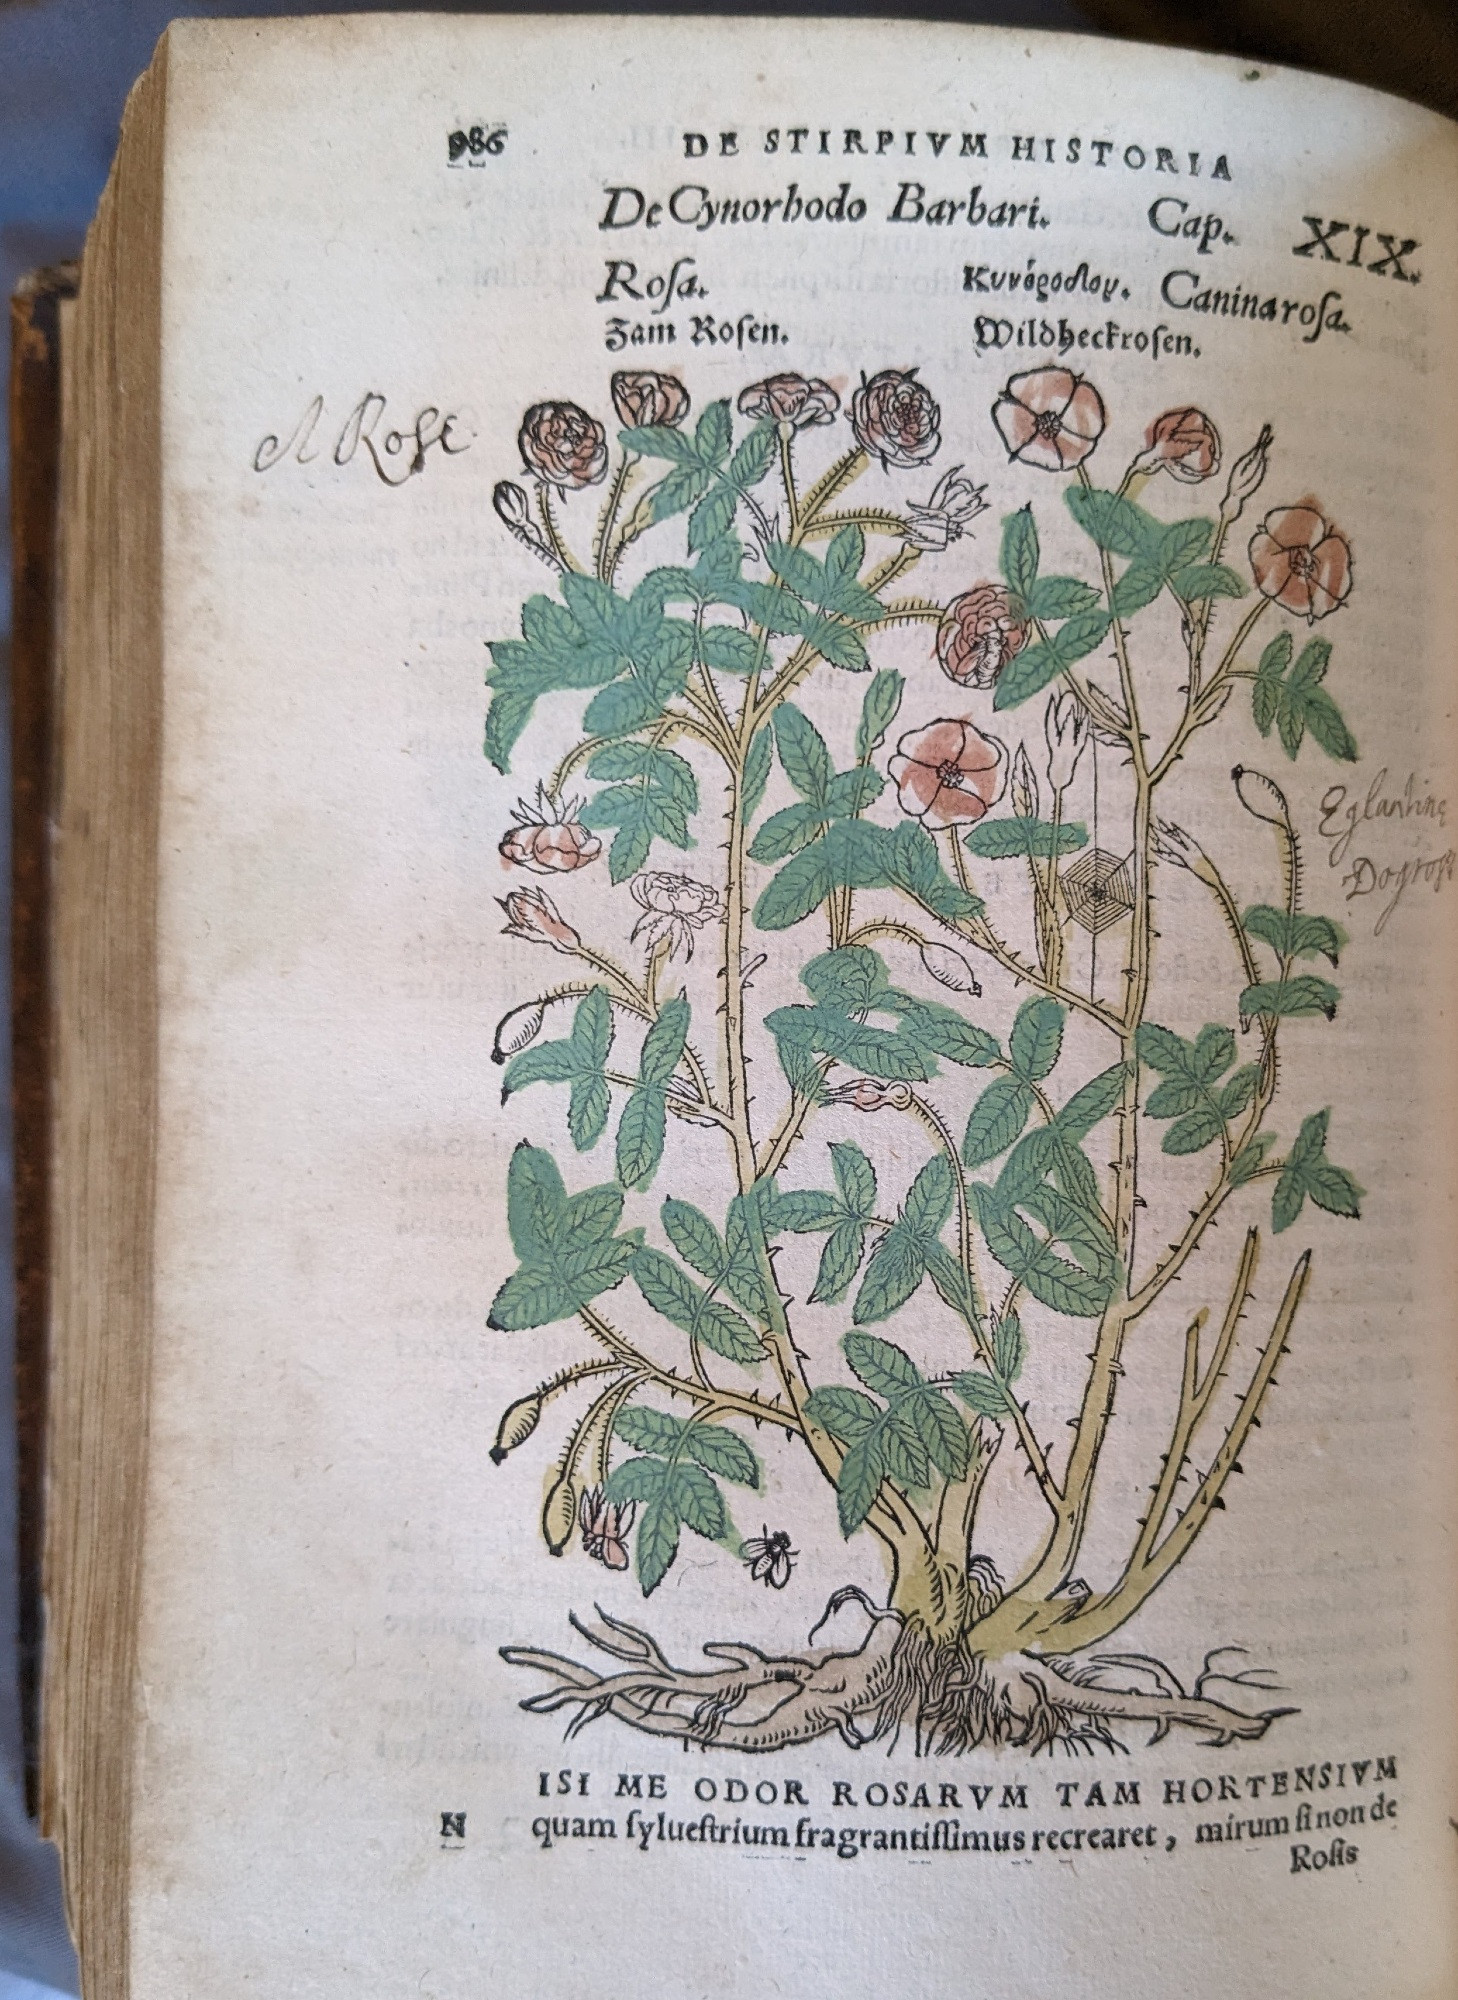 986 DE STIRPIVM HISTORIA
De Cynorhodo Barbari. Cap. XIX.
Roſa. Κυνόροδον. Canina roſa.
Zam Roſen. Wildheckroſen.
A Rose.
Eglantine
Dogrose
ISI ME ODOR ROSARVM TAM HORTENSIVM
N quam ſylueſtrium fragrantiſſimus recrearet, mirum ſi non de
Roſis